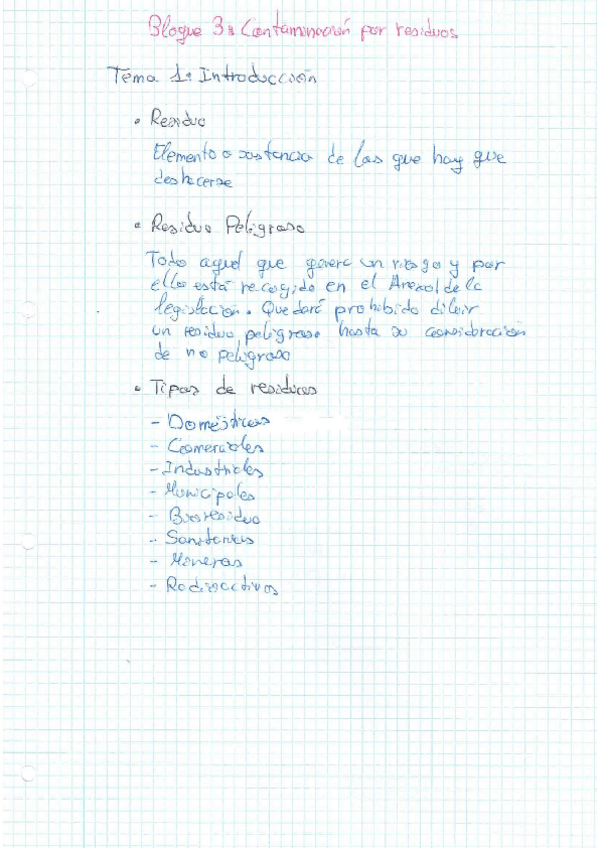 Bloque 3: Contaminación por residuos
Tema 1: Introducción
• Residuo
Elemento o sustancia de las que hay que
deshacerse
• Residuo Peligroso
Todo aquel que genere un riesgo y por
ello está recogido en el Anexo I de la
legislación. Quedará prohibido diluir
un residuo peligroso hasta su consideración
de no peligroso
• Tipos de residuos
- Domésticos
- Comerciales
- Industriales
- Municipales
- Biorresiduo
- Sanitarios
- Mineros
- Radioactivos